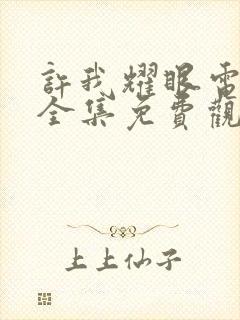 許我耀眼電
全集免費觀
上上仙子